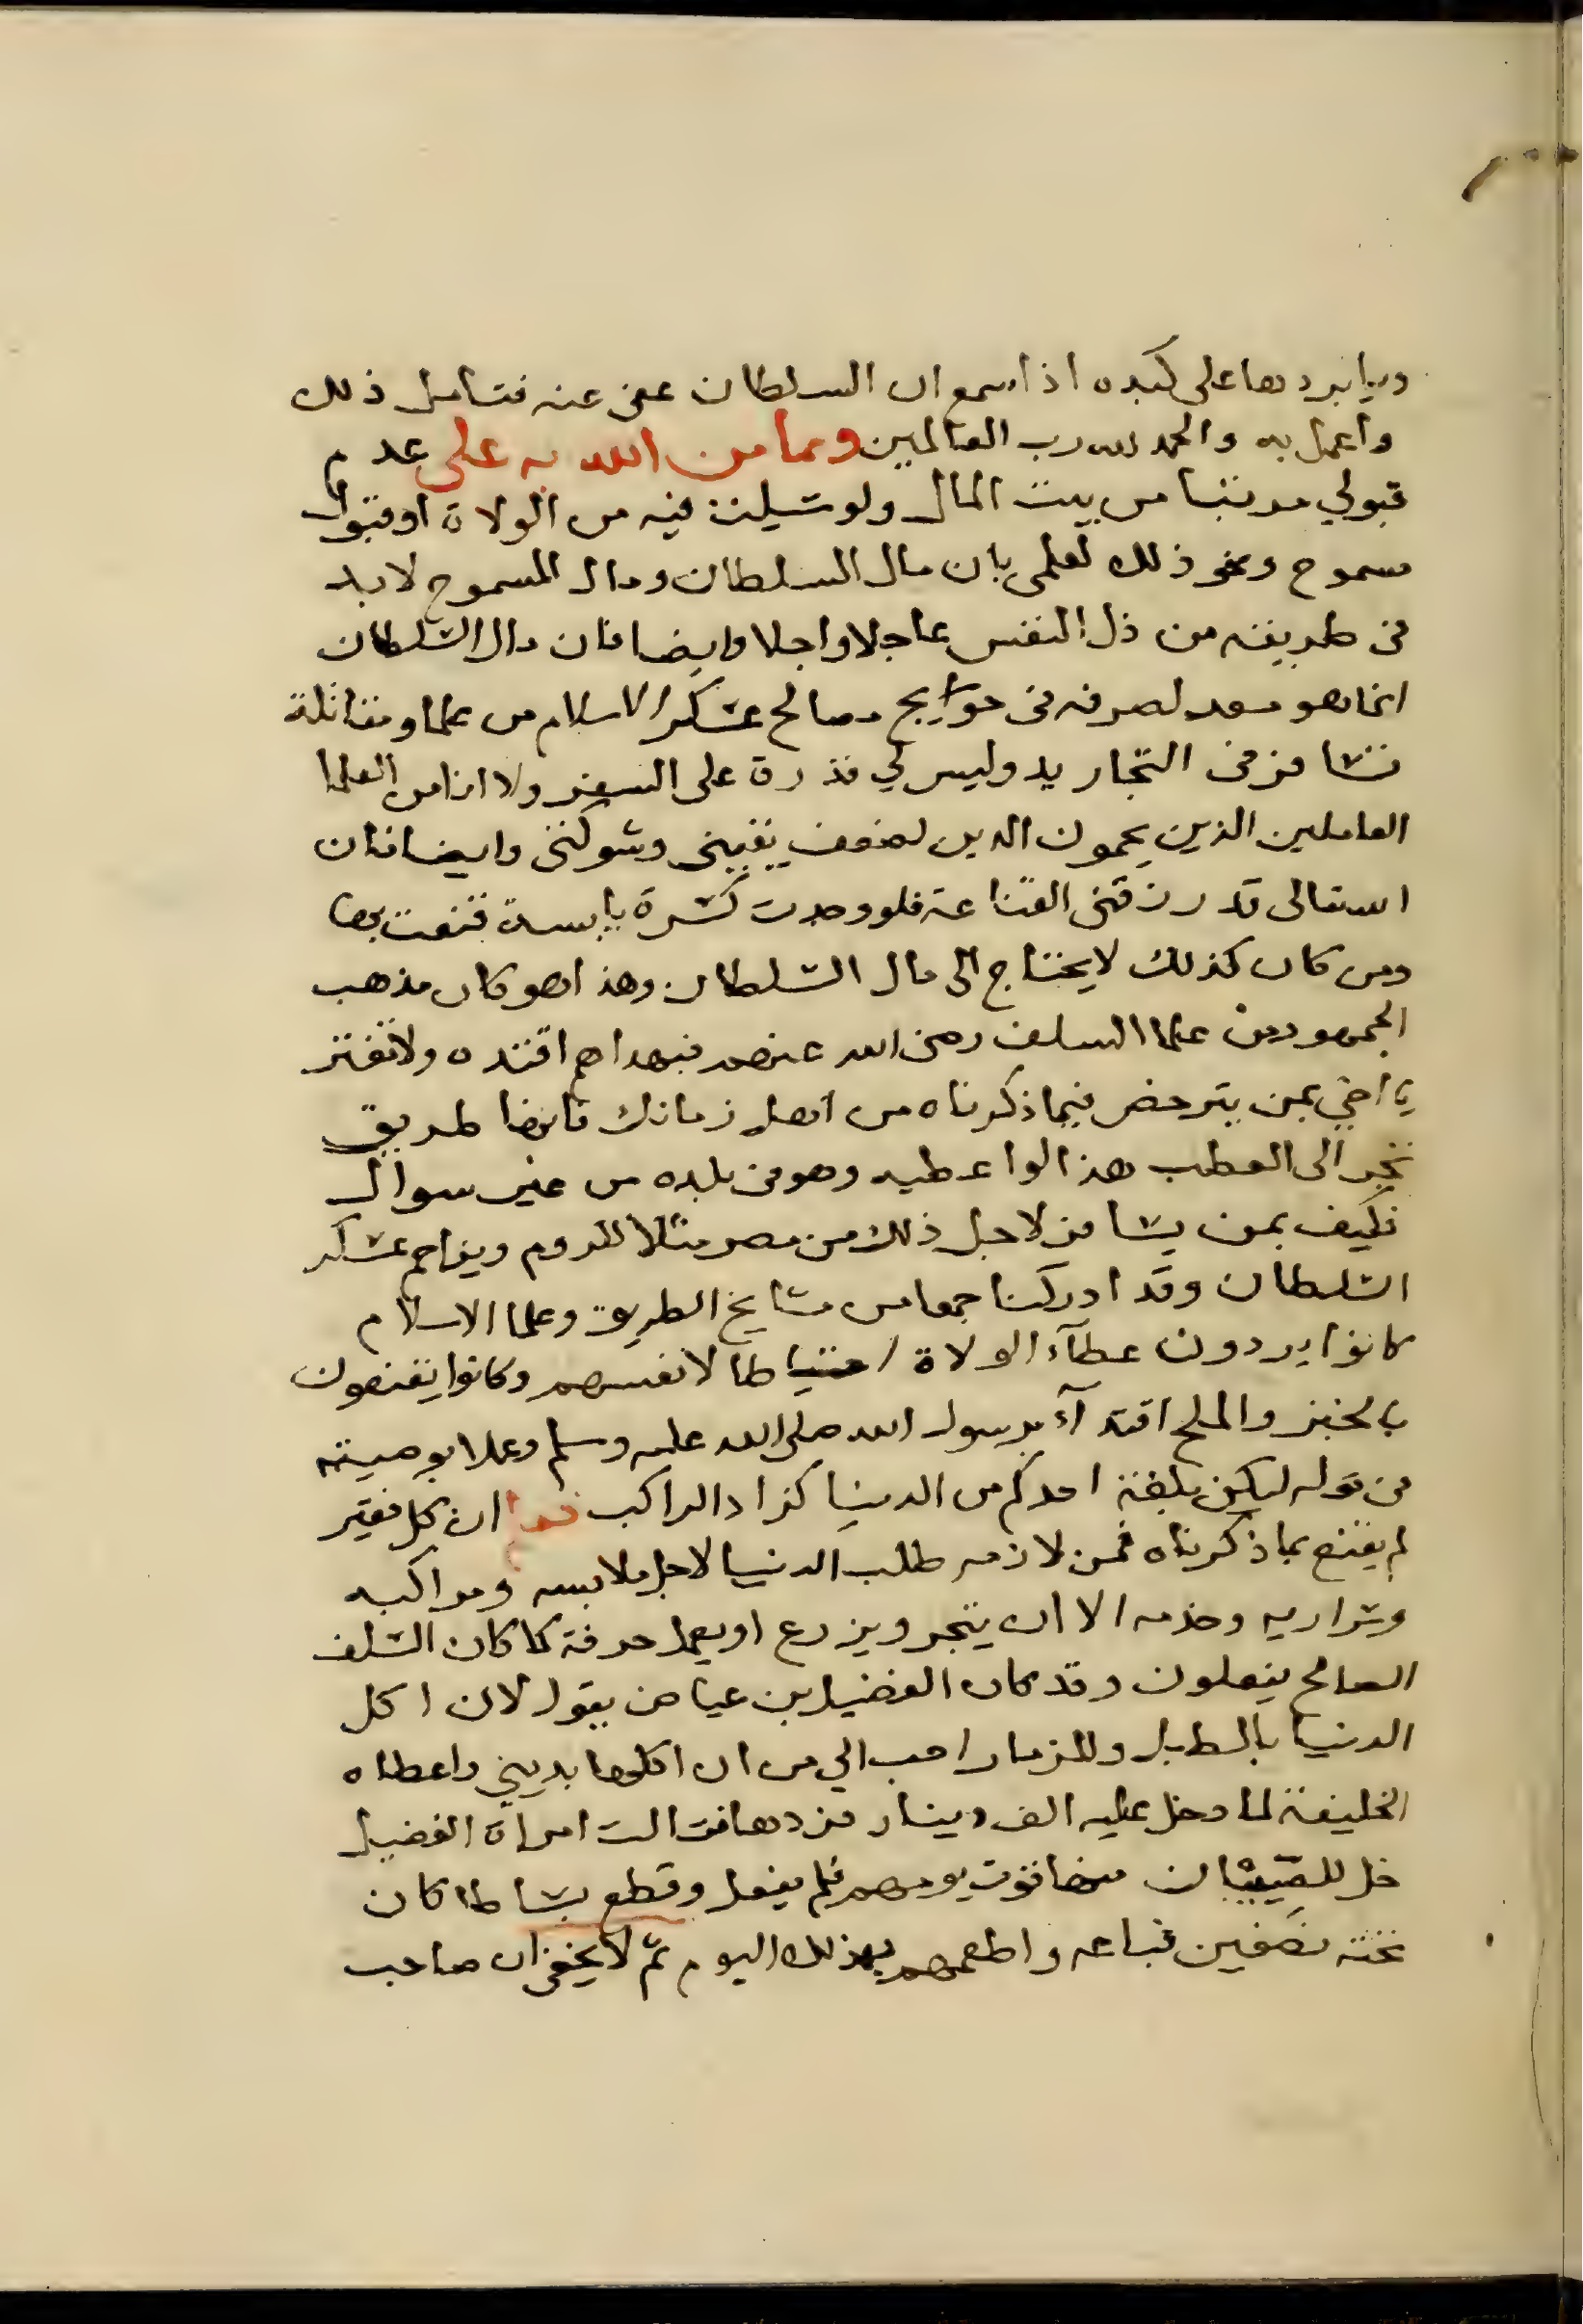 ويا بردها على كبده اذا سمع ان السلطان عفى عنه فتامل ذلك
واعمل به والحمد لله رب العالمين ومما من الله به على عدم
قبولي مرتبا من بيت المال ولو سيلت فيه من الولاة او قبول
مسموح ونحو ذلك لعلمي بان مال السلطان ومال المسموح لابد
في طريقه من ذل النفس عاجلا واجلا وايضا فان مال السلطان
انما هو معد لصرفه في حوايج مصالح عسكر الاسلام من علما ومقاتلة
تسافر في التجاريد وليس لي قدرة على السفر ولا انا من العلما
العاملين الذين يحمون الدين لضعف يقيني وشوكتي وايضا فان
الله تعالى قد رزقني القناعة فلو وجدت كسرة يابسة قنعت بها
ومن كان كذلك لا يحتاج الى مال السلطان وهذا هو كان مذهب
الجمهور من علما السلف رضي الله عنهم فبهداهم اقتده ولا تغتر
يا اخي بمن يترخص فيما ذكرناه من اهل زمانك فانها طريق
تجر الى العطب هذا لو اعطيه وهو في بلده من غير سوال
فكيف بمن يسافر لاجل ذلك من مصر مثلا للروم ويزاحم عسكر
السلطان وقد ادركنا جمعا من مشايخ الطريق وعلما الاسلام
كانوا يردون عطآء الولاة احتياطا لانفسهم وكانوا يقنعون
بالخبز والملح اقتدآء برسول الله صلى الله عليه وسلم وعملا بوصيته
في قوله ليكن بلغة احدكم من الدنيا كزاد الراكب ان كل فقير
لم يقنع بما ذكرناه فمن لازمه طلب الدنيا لاجل ملابسه ومراكبه
وسراريه وخدمه الا ان يتجر ويزرع او يعمل حرفة كما كان السلف
الصالح يفعلون وقد كان الفضيل بن عياض يقول لان اكل
الدنيا بالطبل والمزمار احب الي من ان اكلها بديني واعطاه
الخليفة لما دخل عليه الف دينار فردها فقالت امراة الفضيل
خل للصبيان منها قوت يومهم فلم يفعل وقطع بساطا كان
تحته نصفين فباعه واطعمهم بهذلك اليوم ثم لا يخفى ان صاحب